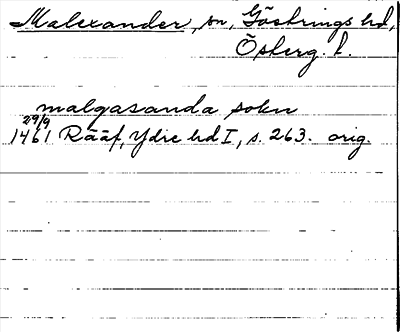 Malexander, sn, Göstrings hd,
Östberg. l.
malgasanda sokn
29/9
1461 Rääf, Ydre hd I, s. 263. orig.